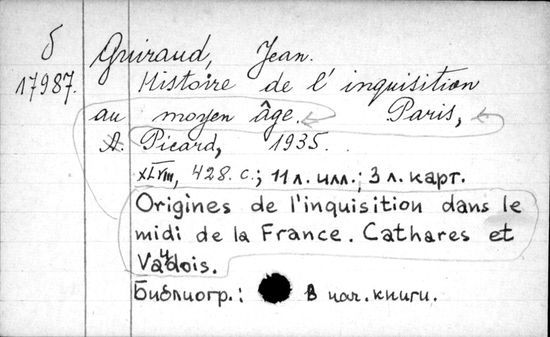 б Guiraud, Jean.
17987. Histoire de l'inquisition
au moyen âge. Paris,
A. Picard, 1935.
XLVIII, 428 с.; 11 л. илл.; 3 л. карт.
Origines de l'inquisition dans le
midi de la France. Cathares et
Vaudois.
Библиогр.: в нач. книги.